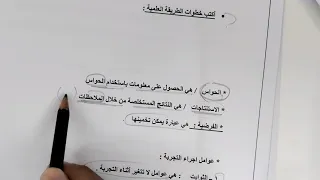 • أكتب خطوات الطريقة العلمية :
* الحواس / هي الحصول على معلومات باستخدام الحواس
* الاستنتاجات / هي النتائج المستخلصة من خلال الملاحظات
* الفرضية : هي عبارة يمكن تخمينها
* عوامل اجراء التجربة :
الثوابت : هي عوامل لا تتغير أثناء التجربة